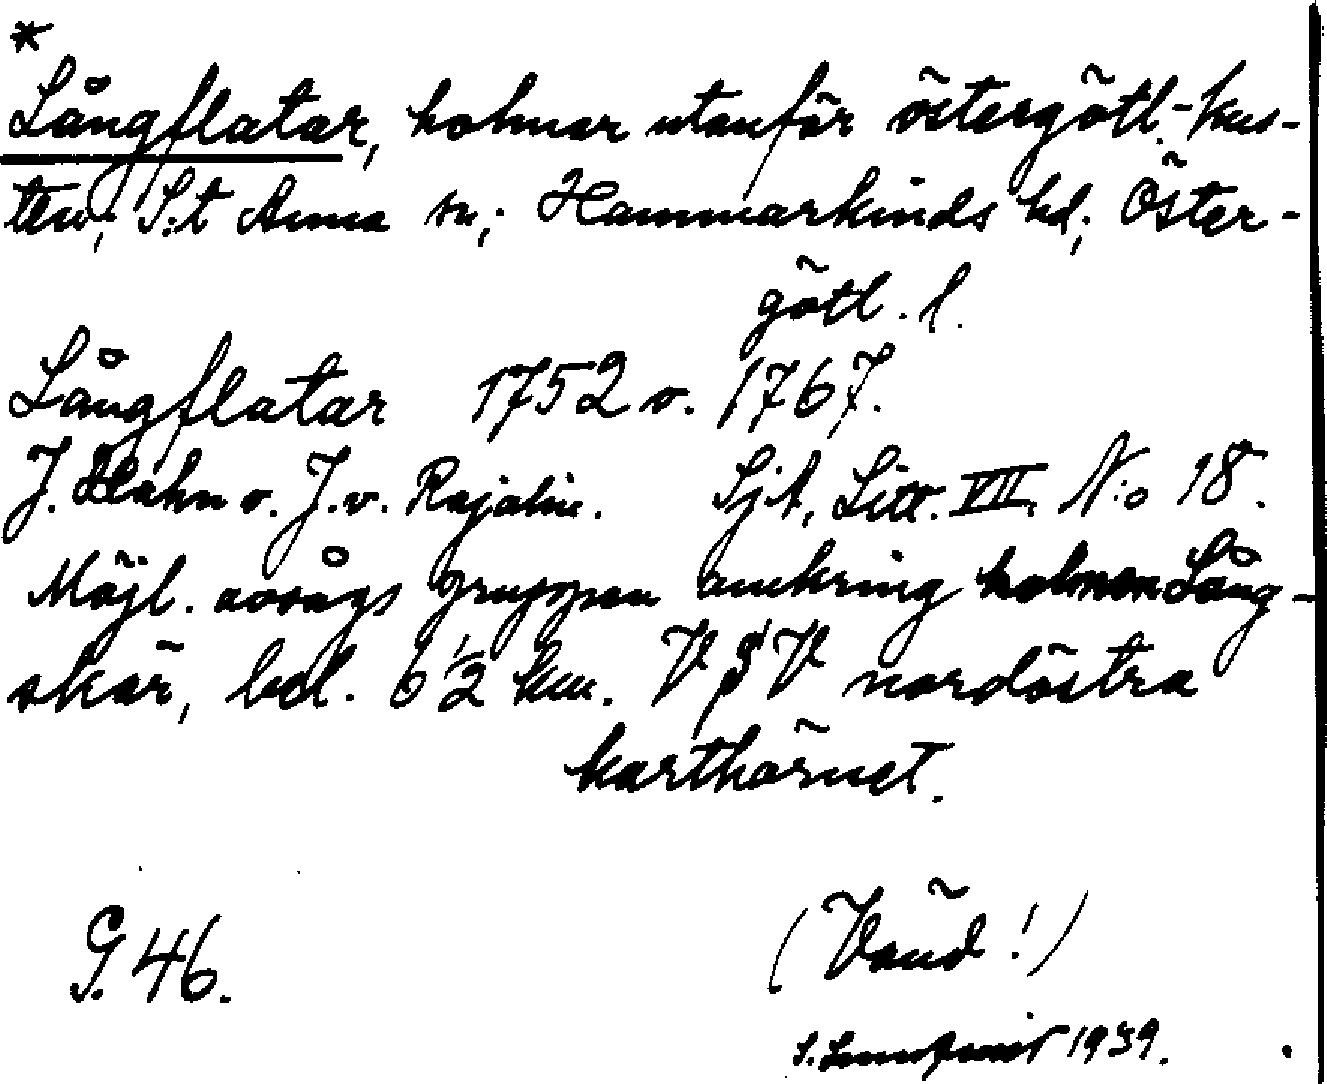 *
Långflatar, holmar utanför östergötl.-kus-
ten; S:t Anna sn; Hammarkinds hd; Öster-
götl. l.
Långflatar 1752 o. 1767.
J. Hahn o. J. v. Rajalin. Sjk, Litt. VII. N:o 18.
Möjl. avsågs gruppen omkring holmen Lång-
skär, bel. 6 1/2 km. V S V nordöstra
karthörnet.
G. 46. (Vänd!)
S. 1939.